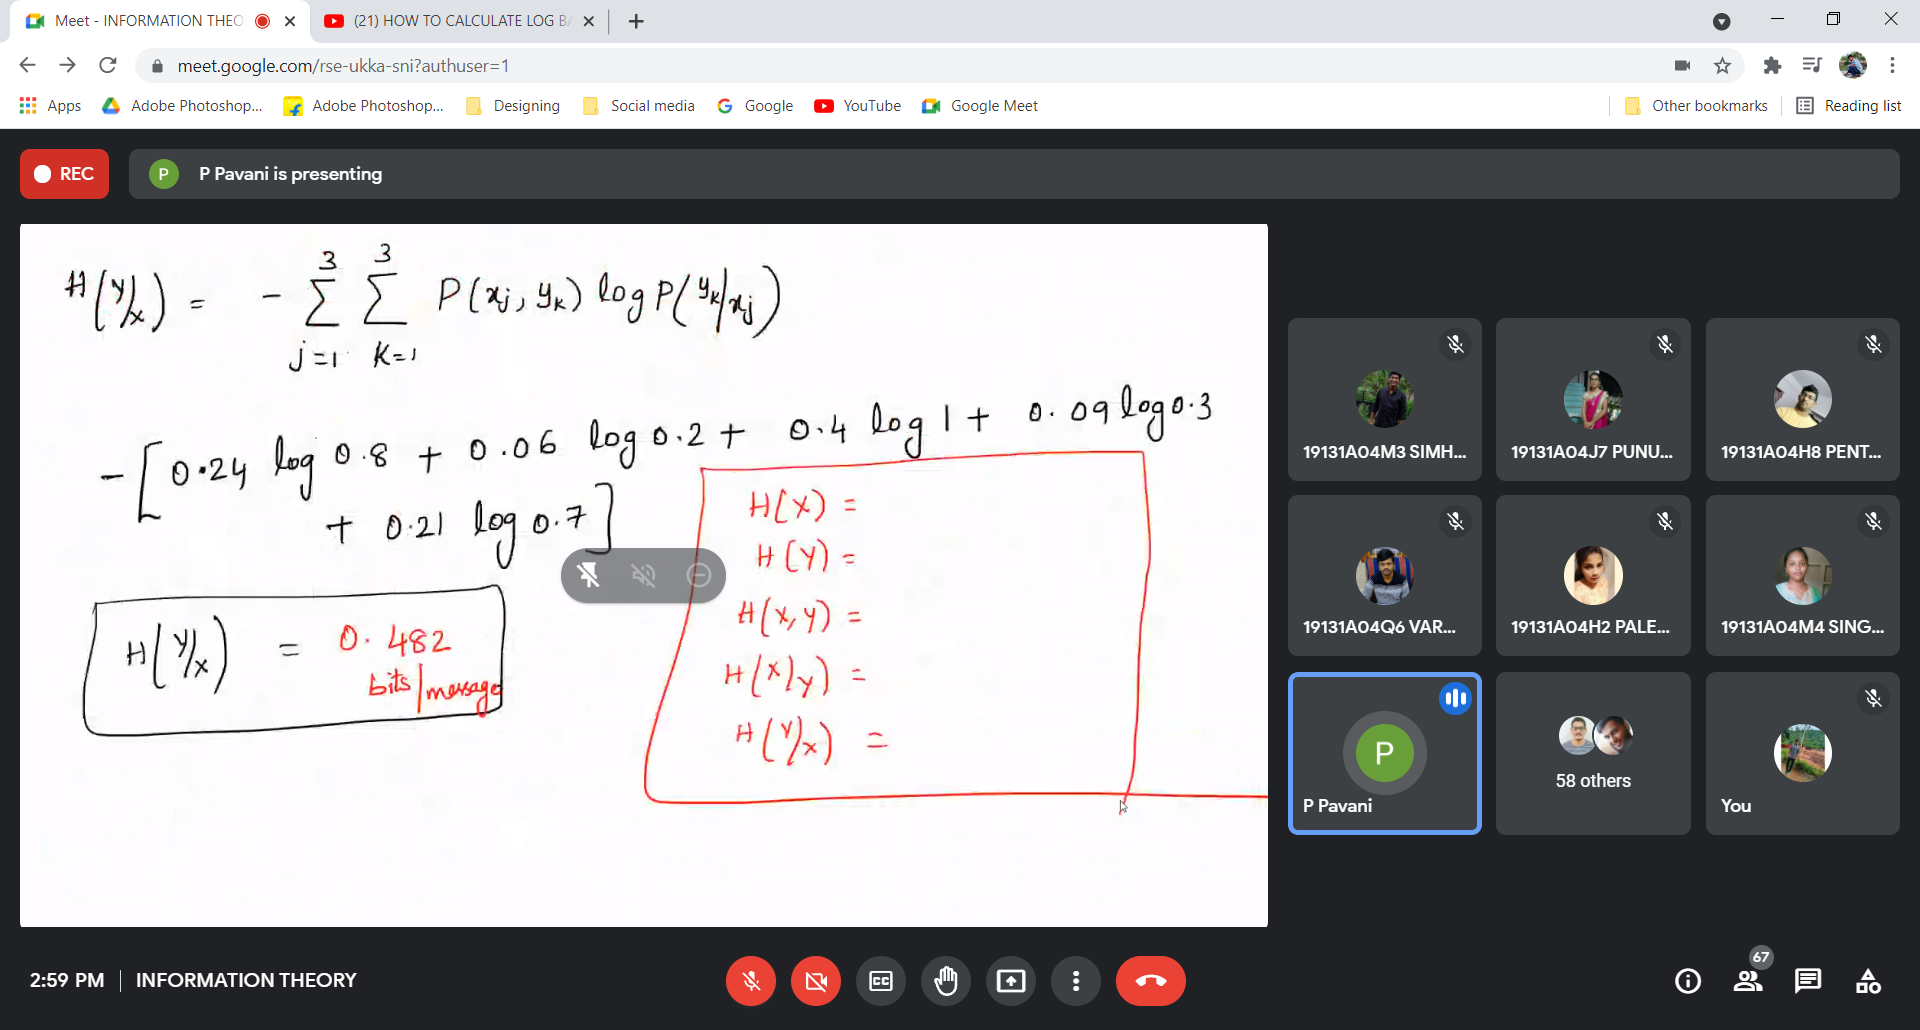 Meet - INFORMATION THEO
(21) HOW TO CALCULATE LOG BA
meet.google.com/rse-ukka-sni?authuser=1
Apps Adobe Photoshop... Adobe Photoshop... Designing Social media Google YouTube Google Meet Other bookmarks Reading list
REC
P P Pavani is presenting
H(Y/X) = - 3∑j=1 3∑k=1 P(xj, yk) log P(yk/xj)
- [0.24 log 0.8 + 0.06 log 0.2 + 0.4 log 1 + 0.09 log 0.3
+ 0.21 log 0.7]
H(Y/X) = 0.482
bits/message
H(X) =
H(Y) =
H(X,Y) =
H(X/Y) =
H(Y/X) =
19131A04M3 SIMH... 19131A04J7 PUNU... 19131A04H8 PENT...
19131A04Q6 VAR... 19131A04H2 PALE... 19131A04M4 SING...
P
P Pavani
58 others
You
2:59 PM | INFORMATION THEORY
CC
67